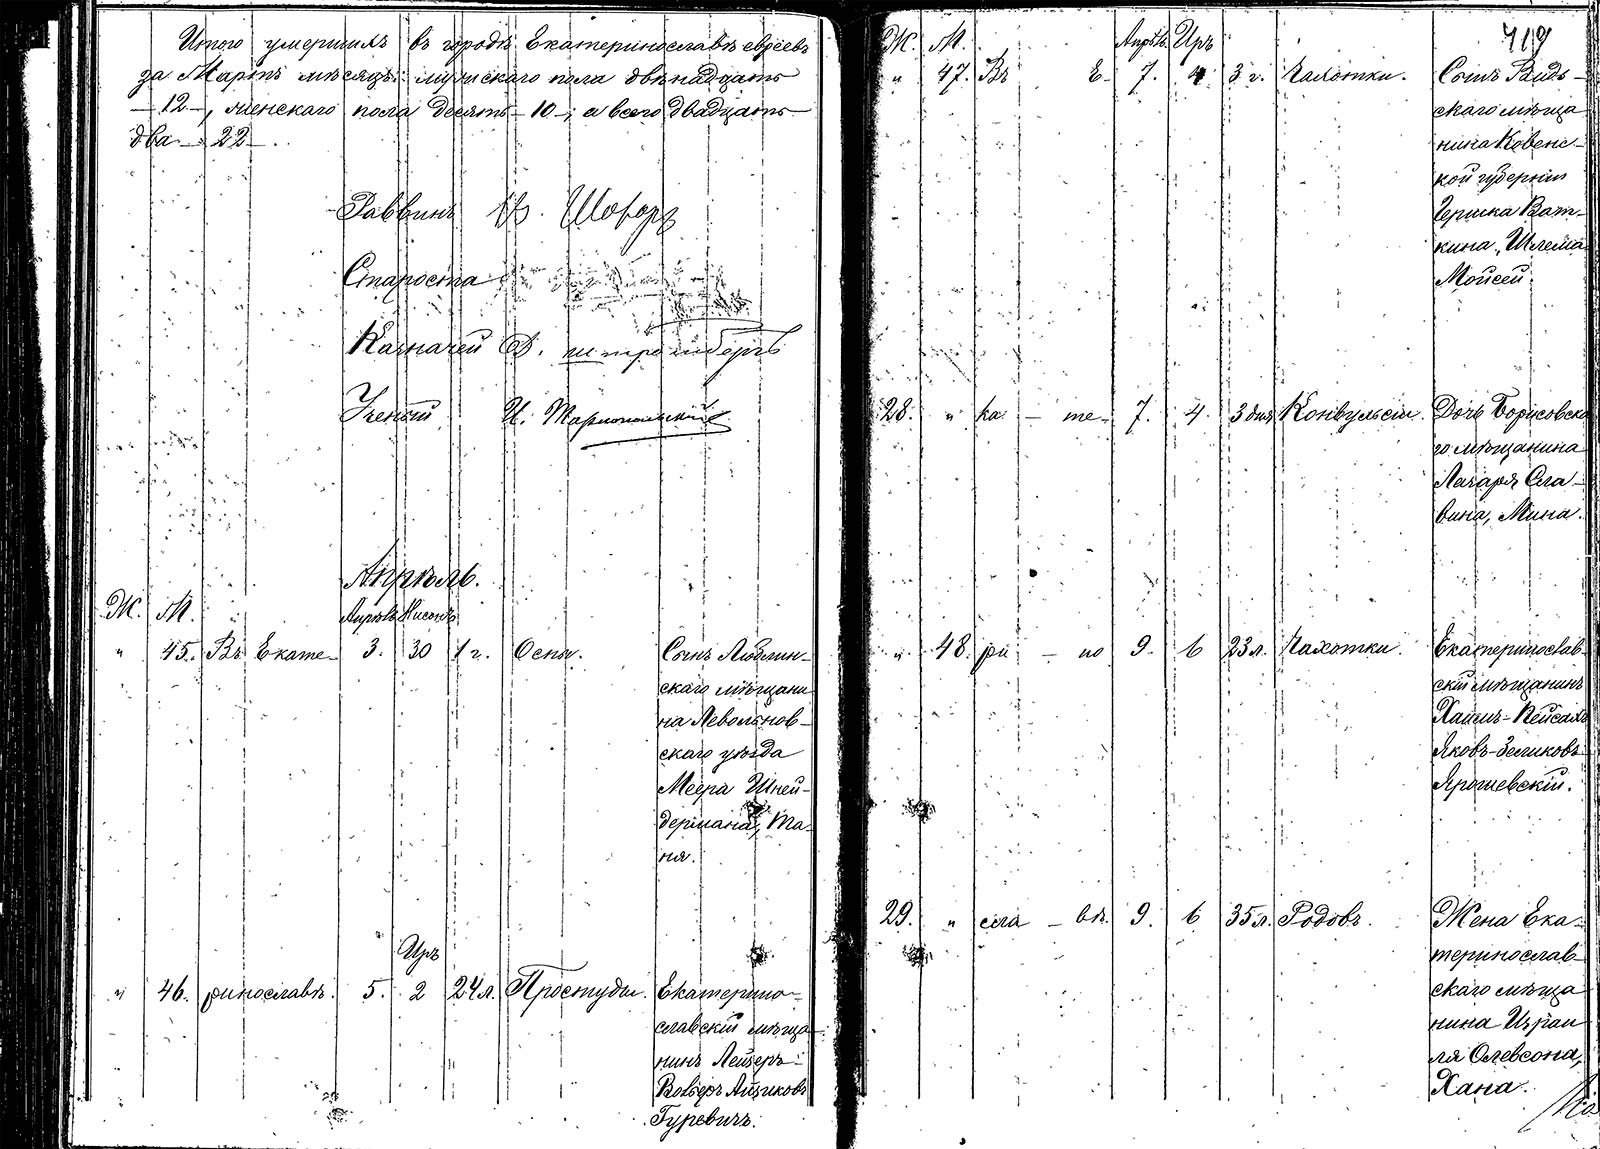 Итого умершихъ въ городѣ Екатеринославѣ евреевъ
за Мартъ мѣсяцъ: мужскаго пола двѣнадцать
— 12 —, женскаго пола десять — 10 —; а всего двадцать
два — 22 — .
Раввинъ В. Шоваръ
Староста
Казначей
Ученый И. Мариопольскій
Апрѣль.
Ж. М. Апрѣль Нисонъ
„ 45. Въ Екате- 3. 30 1 г. Оспы. Сынъ Люблин-
скаго мѣщани
на
скаго уѣзда
Меера Шней-
дермана, Та-
ня.
Иръ
„ 46. ринославѣ. 5. 2 24 л. Простуды. Екатерино-
славскій мѣща-
нинъ Лейзеръ-
Вольфъ Айзиковъ
Гуревичъ.
419
Ж. М. Апрѣль. Иръ
„ 47. Въ Е- 7. 4 3 г. Чахотки. Сынъ Видз-
скаго мѣща
нина Ковенс-
кой губерніи
Гершка Ват-
кина, Шлема
Мойсей.
28. „ ка - те- 7. 4. 3 дня Конвульсіи. Дочь Борисовска
го мѣщанина
Лазаря Сла-
вина, Мина.
„ 48. ри - но 9. 6 23 л. Чахотки. Екатеринослав-
скій мѣщанинъ
Хаимъ-Пейсахъ
Яковъ-Зеликовъ
Ярошевскій.
29. „ сла - вѣ. 9. 6 35 л. Родовъ. Жена Ека-
теринослав
скаго мѣща
нина Израи
ля Олевсона,
Хана.